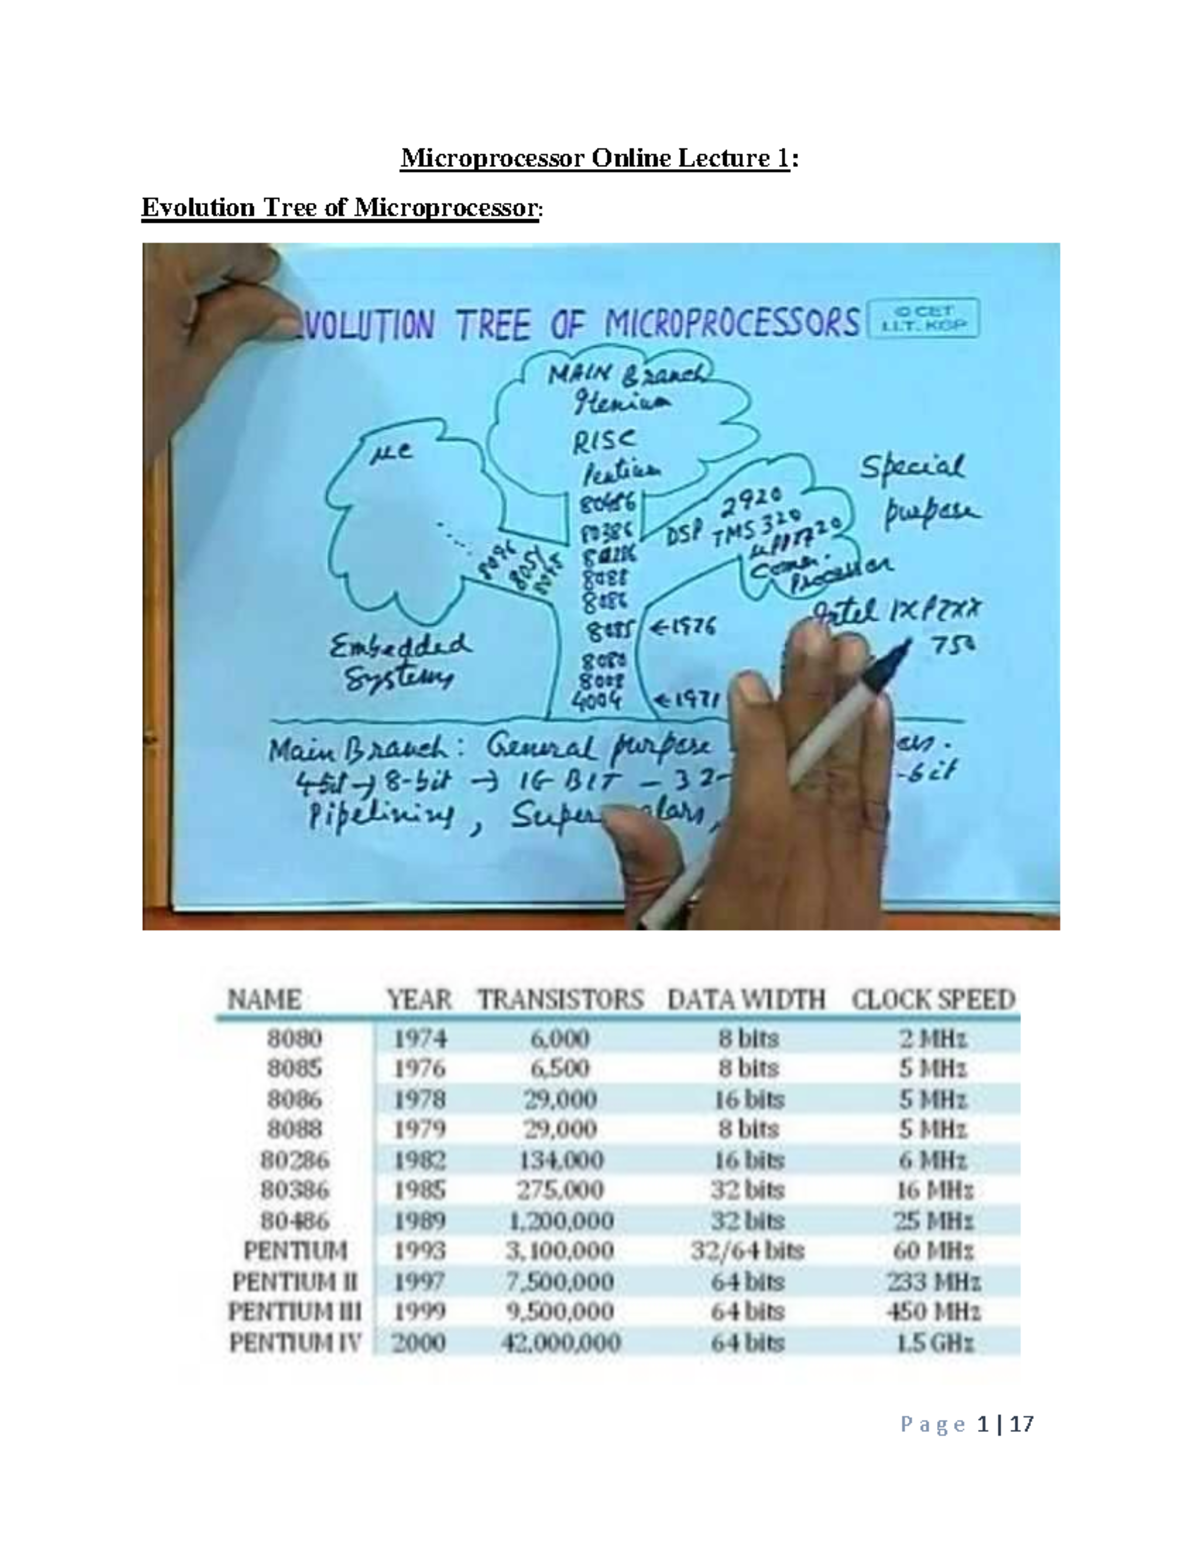 Microprocessor Online Lecture 1:
Evolution Tree of Microprocessor:
VOLUTION TREE OF MICROPROCESSORS
© CET
I.I.T. KGP
MAIN Branch
Itenium
RISC
Pentium
80486
80386
80286
8088
8086
8085 ←1976
8080
8008
4004 ←1971
μc
8096
8051
8048
Embedded
Systems
2920
DSP TMS 320
μPD7720
Comm.
Processor
Special
purpose
Intel IXP2XX
750
Main Branch: General purpose
4bit → 8-bit → 16 BIT - 32- -bit
Pipelining, Super alars,
NAME YEAR TRANSISTORS DATA WIDTH CLOCK SPEED
8080 1974 6,000 8 bits 2 MHz
8085 1976 6,500 8 bits 5 MHz
8086 1978 29,000 16 bits 5 MHz
8088 1979 29,000 8 bits 5 MHz
80286 1982 134,000 16 bits 6 MHz
80386 1985 275,000 32 bits 16 MHz
80486 1989 1,200,000 32 bits 25 MHz
PENTIUM 1993 3,100,000 32/64 bits 60 MHz
PENTIUM II 1997 7,500,000 64 bits 233 MHz
PENTIUM III 1999 9,500,000 64 bits 450 MHz
PENTIUM IV 2000 42,000,000 64 bits 1.5 GHz
Page 1 | 17